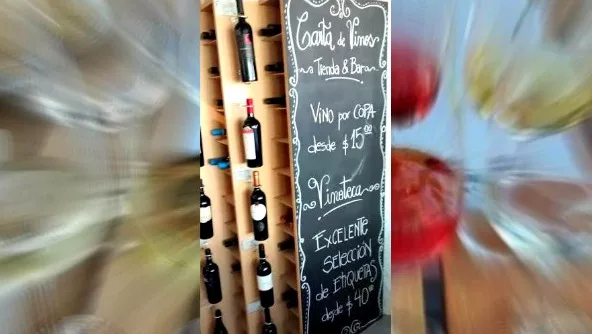 Carta de Vinos
Tienda & Bar
VINO por COPA
desde $ 15.00
Vinoteca
EXCELENTE
SELECCIÓN
de ETIQUETAS
desde $ 40.00